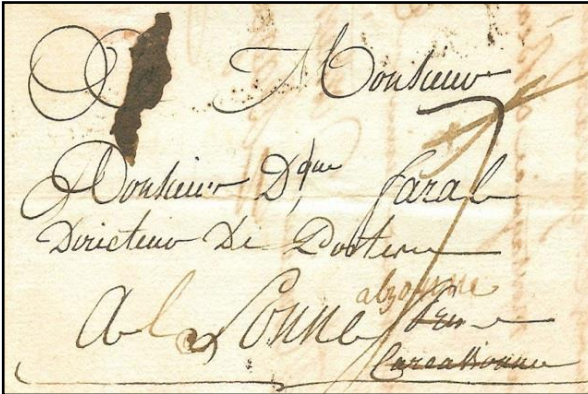 Monsieur
Monsieur D.que faral
Directeur De Posterie
alzonne
Alzonne
Carcassonne